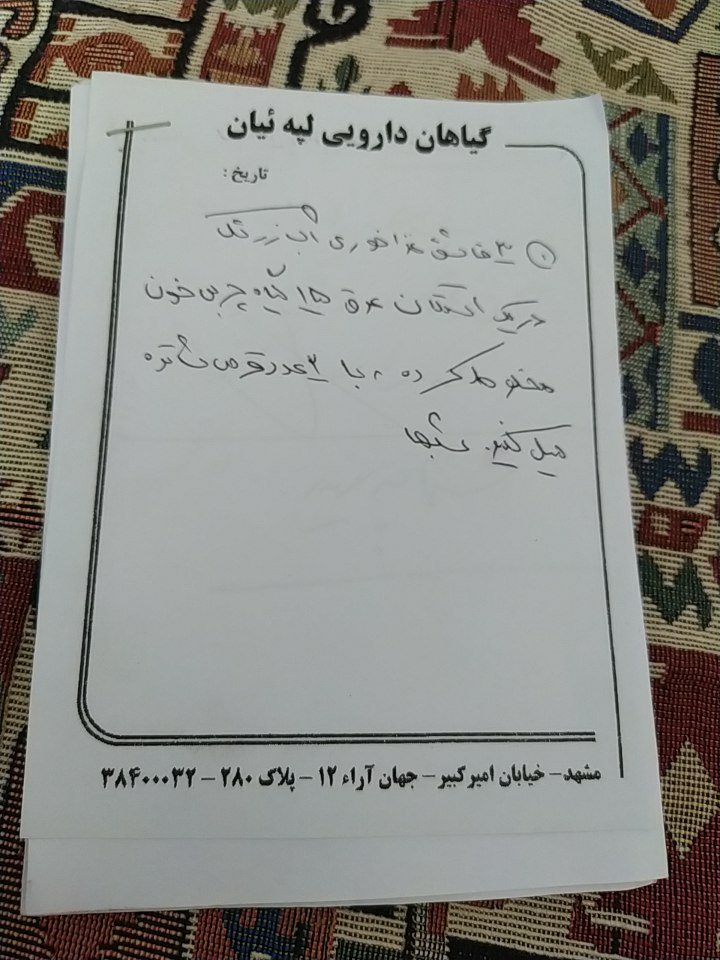 گیاهان دارویی لپه ئیان
تاریخ:
۱ ۳ قاشق غذاخوری آب زرشک
در یک استکان عرق ۱۵ گیاه چربی خون
مخلوط کرده، با ۲ عدد قرص شاتره
میل کنید. شبها
مشهد- خیابان امیرکبیر- جهان آراء ۱۲ - پلاک ۲۸۰ - ۳۸۴۰۰۰۳۲